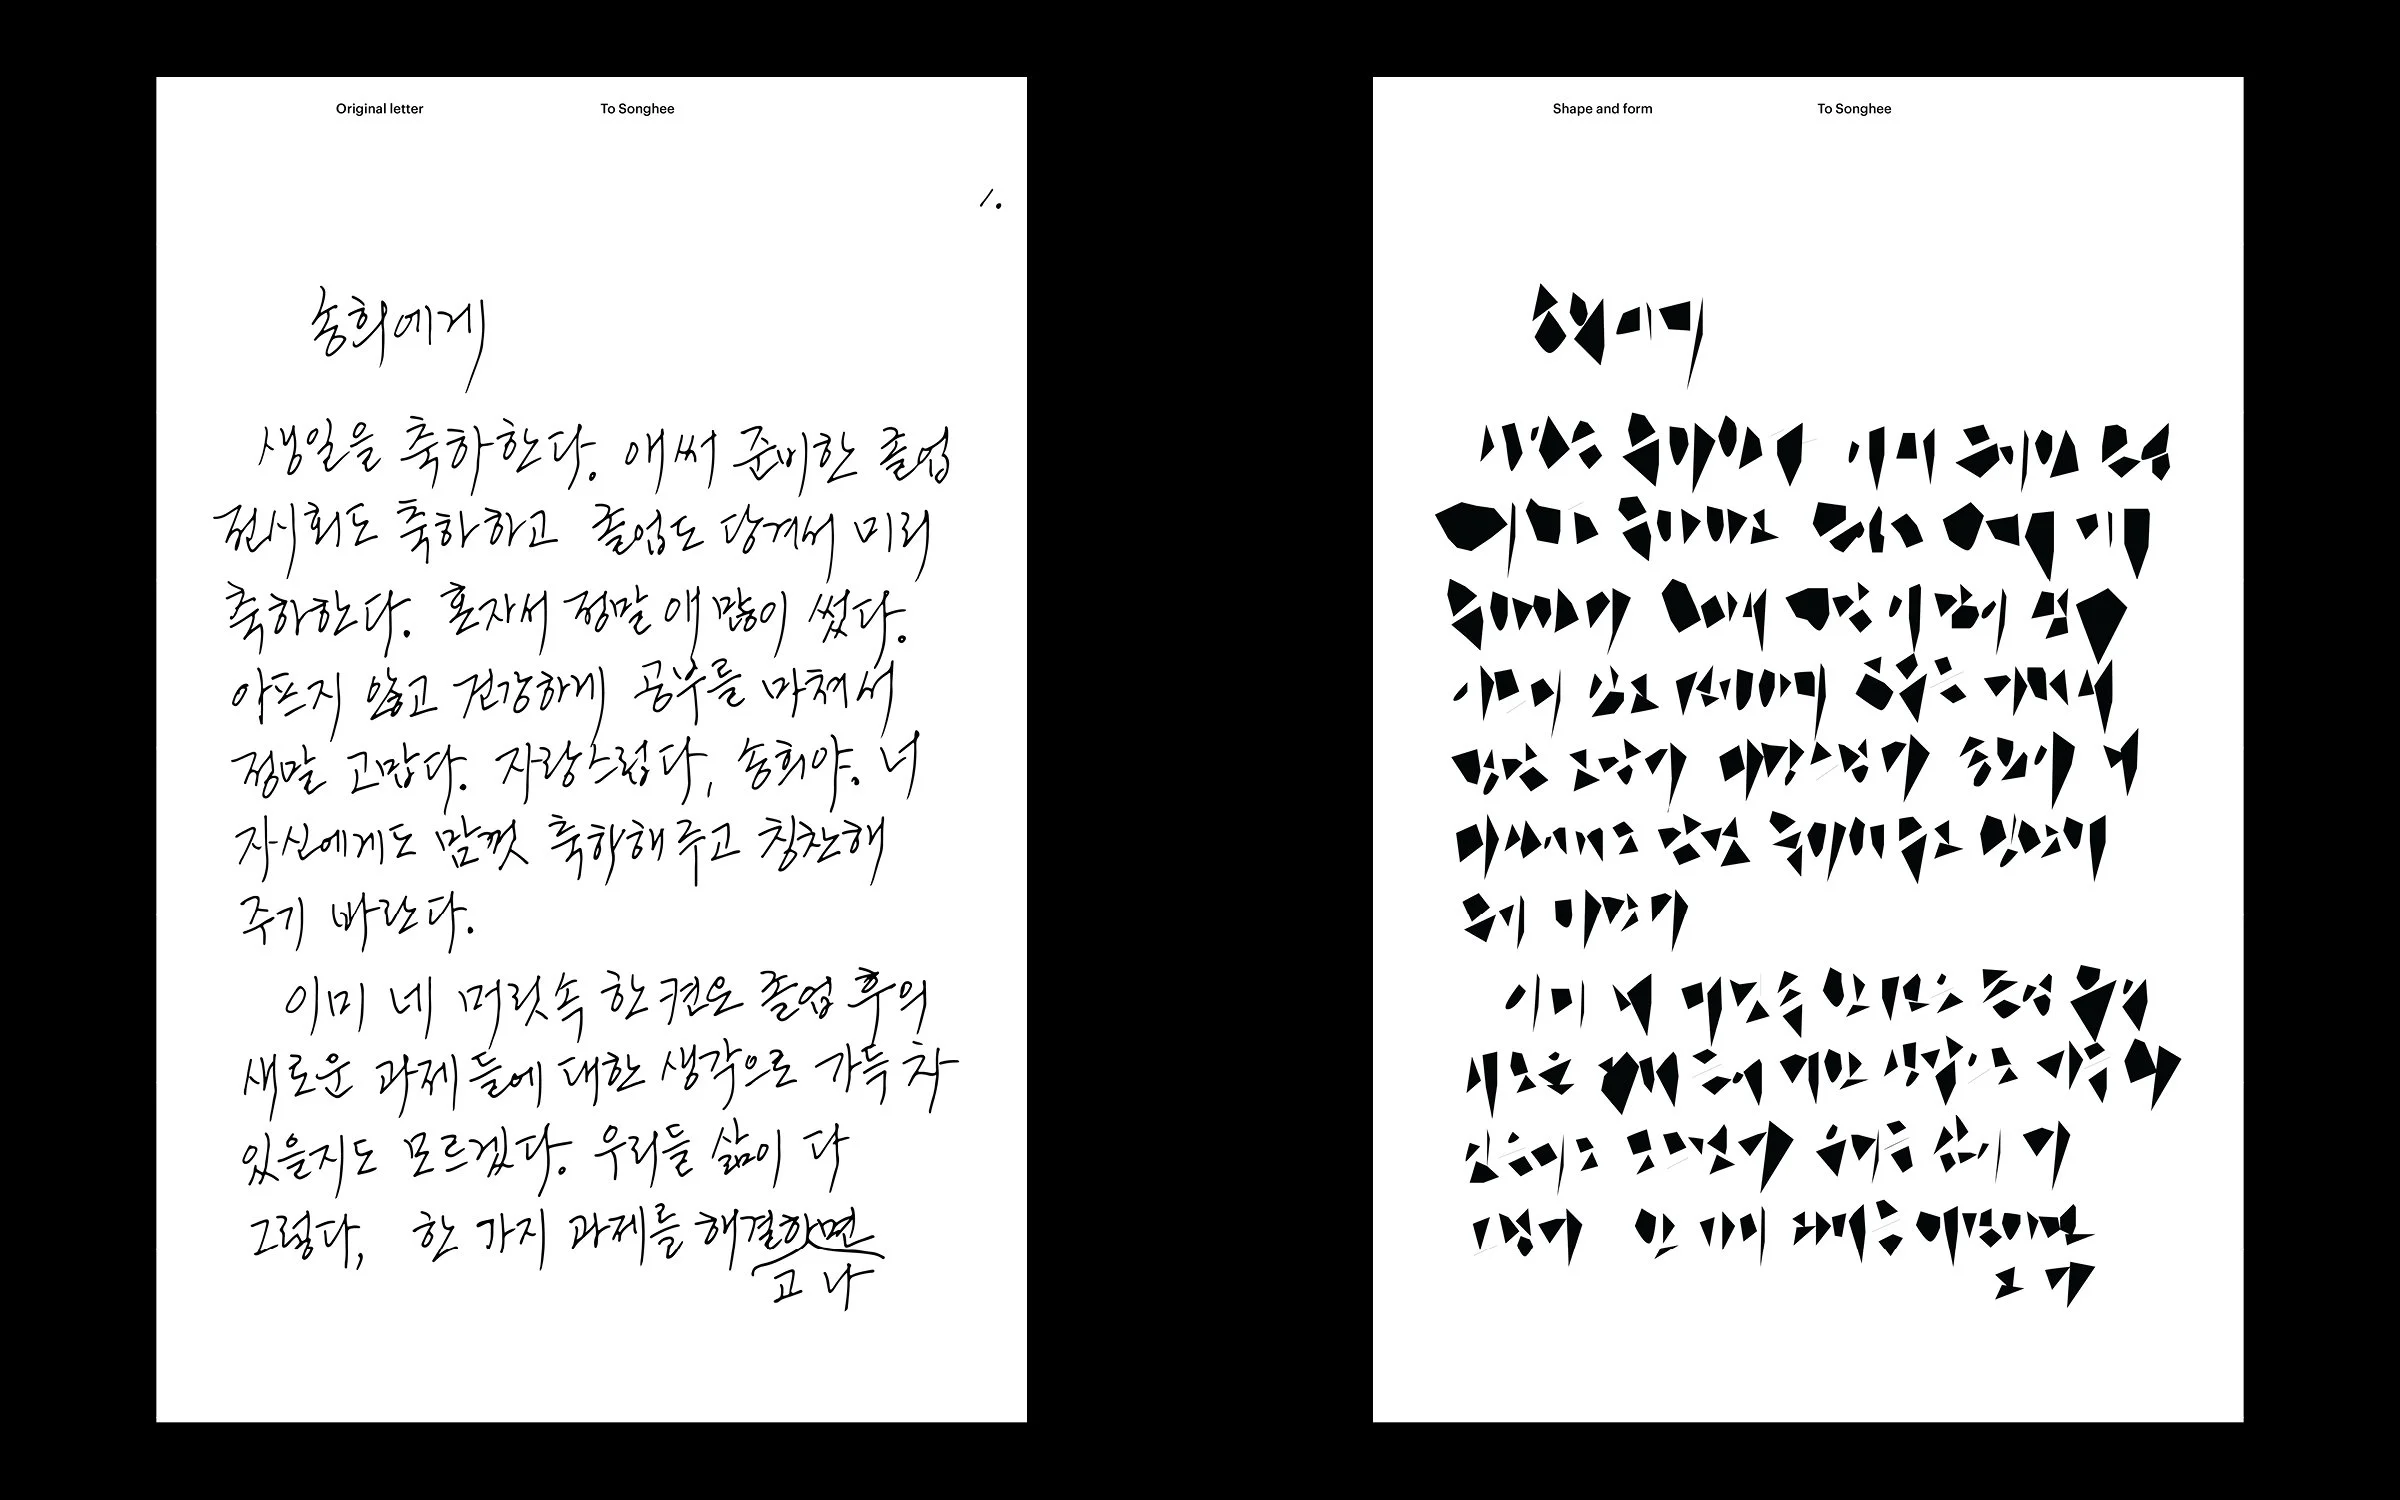 Original letter To Songhee
1.
송희에게
생일을 축하한다. 애써 준비한 졸업
전시회도 축하하고 졸업도 당겨서 미리
축하한다. 혼자서 정말 애 많이 썼다.
아프지 않고 건강하게 공부를 마쳐서
정말 고맙다. 자랑스럽다, 송희야. 너
자신에게도 맘껏 축하해 주고 칭찬해
주기 바란다.
이미 네 머릿속 한 켠은 졸업 후의
새로운 과제들에 대한 생각으로 가득 차
있을지도 모르겠다. 우리들 삶이 다
그렇다, 한 가지 과제를 해결하면
고 나
Shape and form To Songhee